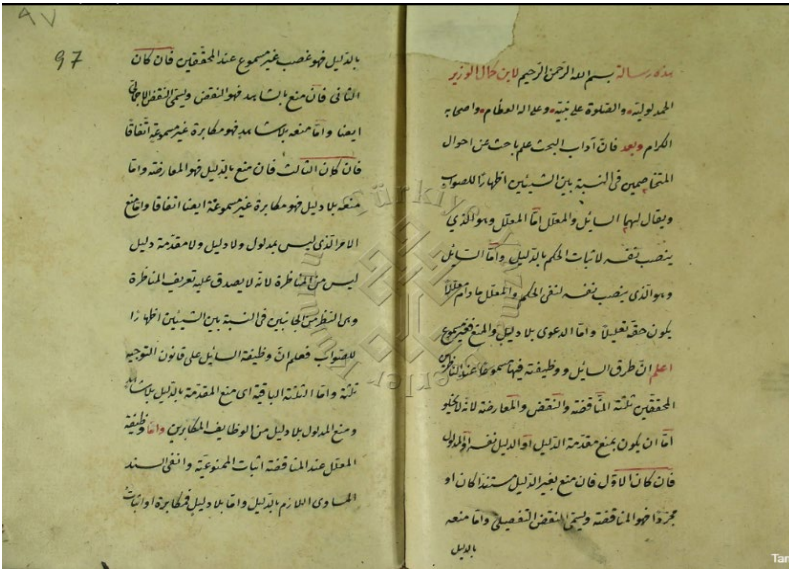 هذه رسالة بسم الله الرحمن الرحيم لابن كمال الوزير
الحمد لوليّه والصلوة على نبيّه وعلى اله العظام واصحابه
الكرام وبعد فانّ آداب البحث علم باحث عن احوال
المتخاصمين في النسبة بين الشيئين اظهارًا للصواب
ويقال لهما السائل والمعلل امّا المعلل وهو الذي
ينصب نفسه لاثبات الحكم بالدليل وامّا السائل
وهو الذي ينصب نفسه لنفى الحكم والمعلل مادام معللًا
يكون حقه تعليلًا وامّا الدعوى بلا دليل والمنع فغير مسموع
اعلم انّ طرق السائل ووظيفته فيها مسموعًا عند الناظرين
المحققين ثلثة المناقضة والنقض والمعارضة لانه لا يخلو
امّا ان يكون بمنع مقدمة الدليل او الدليل نفسه او المدلول
فان كان الاوّل فان منع بغير الدليل مستندًا كان او
مجرّدًا فهو المناقضة ويسمّى النقض التفصيلى وامّا منعه
بالدليل
٨٧
97
بالدليل فهو غصب غير مسموع عند المحققين فان كان
الثانى فان منع بالشاهد فهو النقض ويسمّى النقض الاجمالى
ايضا وامّا منعه بلا شاهد فهو مكابرة غير مسموعة اتّفاقًا
فان كان الثالث فان منع بالدليل فهو المعارضة وامّا
منعه بلا دليل فهو مكابرة غير مسموعة ايضا اتفاقا وامّا منع
الامر الذي ليس بمدلول ولا دليل ولا مقدمة دليل
ليس من المناظرة لانه لا يصدق عليه تعريف المناظرة
وهى النظر من الجانبين في النسبة بين الشيئين اظهارًا
للصواب فعلم انّ وظيفة السائل على قانون التوجيه
ثلثة وامّا الثلثة الباقية اى منع المقدمة بالدليل بلا شاهد
ومنع المدلول بلا دليل من الوظايف المكابرين وامّا وظيفة
المعلل عند المناقضة اثبات الممنوعيّة وانفى السند
المساوى اللازم بالدليل وامّا بلا دليل فمكابرة او اثبات